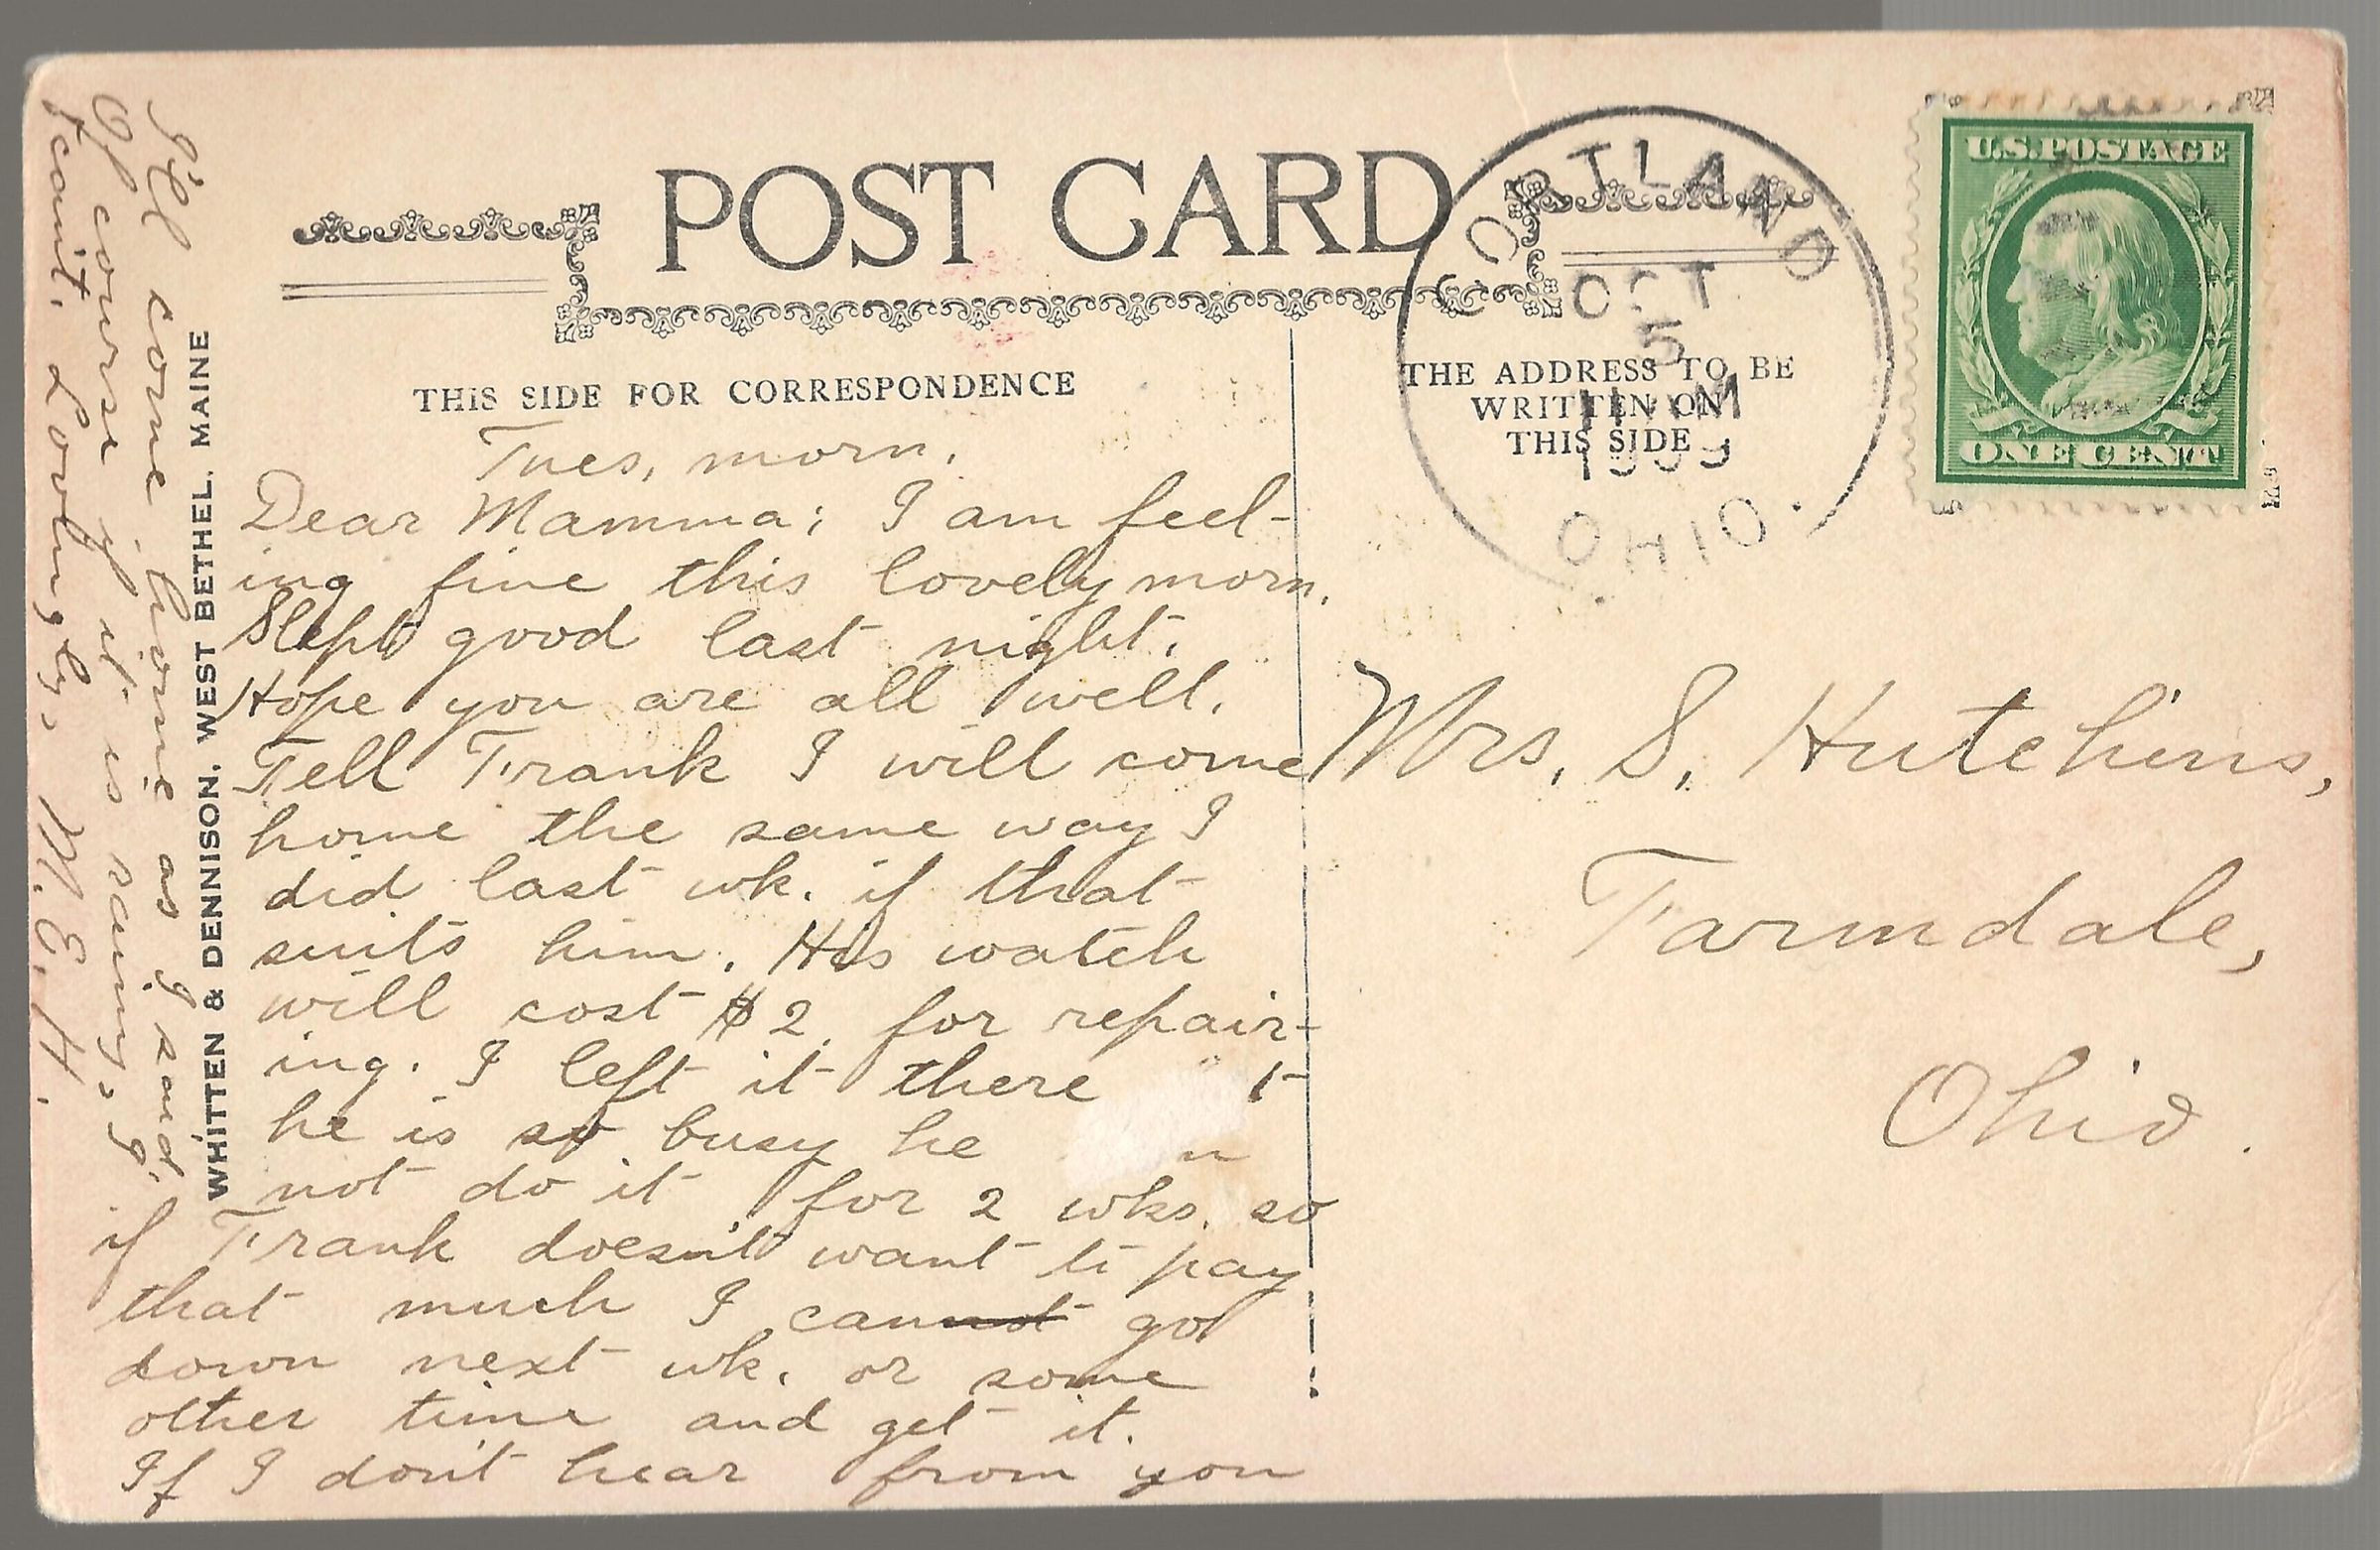 POST CARD
THIS SIDE FOR CORRESPONDENCE
THE ADDRESS TO BE
WRITTEN ON
THIS SIDE
CORTLAND
OCT
5
1909
OHIO.
U.S. POSTAGE
ONE CENT
WHITTEN & DENNISON, WEST BETHEL, MAINE
Tues, morn.
Dear Mamma; I am feel-
ing fine this lovely morn.
Slept good last night.
Hope you are all well.
Tell Frank I will come
home the same way I
did last wk. if that
suits him. His watch
will cost $2. for repair-
ing. I left it there
he is so busy he
not do it for 2 wks. so
if Frank doesn't want to pay
that much I cannot go
down next wk. or some
other time and get it.
If I don't hear from you
I'll come home as I said.
Of course if it is rainy, I
can't. Lovingly, M. E. H.
Mrs. S. Hutchins,
Farmdale,
Ohio.